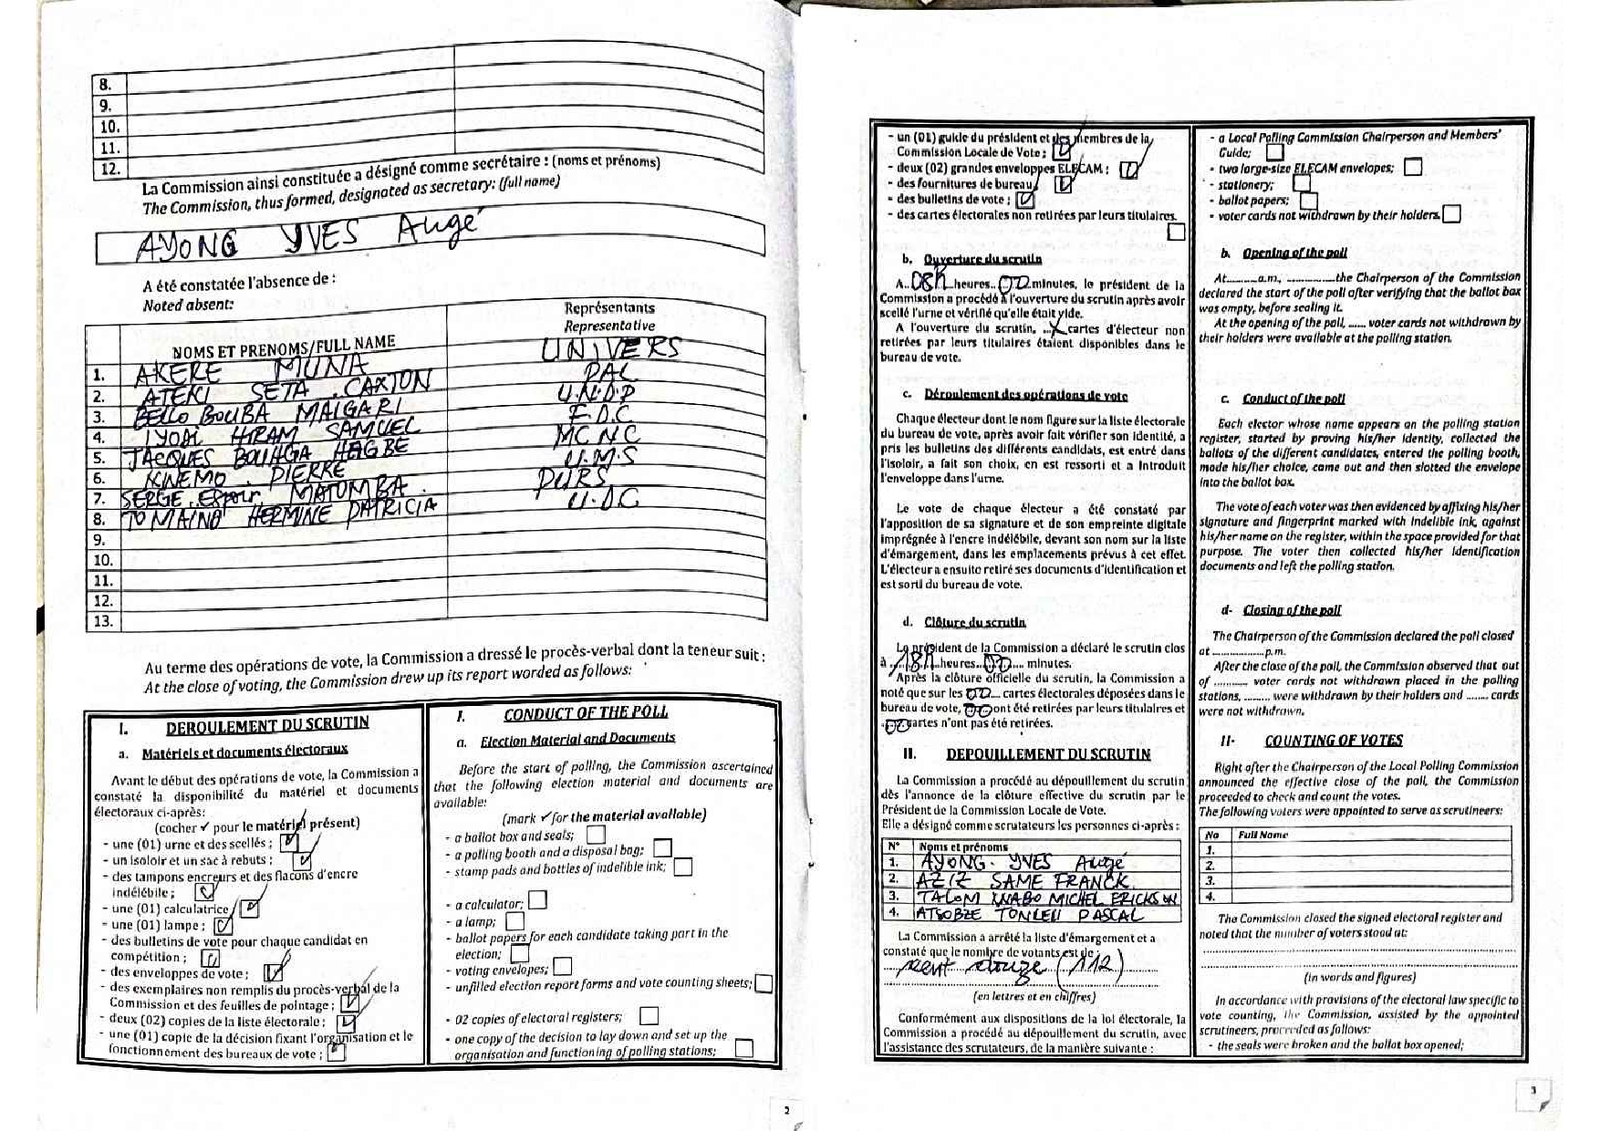 8.
9.
10.
11.
12.
La Commission ainsi constituée a désigné comme secrétaire : (noms et prénoms)
The Commission, thus formed, designated as secretary: (full name)
AYONG YVES Augé
A été constatée l'absence de :
Noted absent:
NOMS ET PRENOMS/FULL NAME
Représentants
Representative
1. AKERE MUNA UNIVERS
2. ATEKI SETA CAXTON PAL
3. BELLO BOUBA MAIGARI U.N.D.P
4. IYODI HIRAM SAMUEL F.D.C
5. JACQUES BOUHGA HAGBE MCNC
6. KWEMO PIERRE U.M.S
7. SERGE Espoir MATOMBA PURS
8. TOMAINO HERMINE PATRICIA U.D.C
9.
10.
11.
12.
13.
Au terme des opérations de vote, la Commission a dressé le procès-verbal dont la teneur suit :
At the close of voting, the Commission drew up its report worded as follows:
I. DEROULEMENT DU SCRUTIN
a. Matériels et documents électoraux
Avant le début des opérations de vote, la Commission a
constaté la disponibilité du matériel et documents
électoraux ci-après:
(cocher ✓ pour le matériel présent)
- une (01) urne et des scellés ;
- un isoloir et un sac à rebuts ;
- des tampons encreurs et des flacons d'encre
indélébile ;
- une (01) calculatrice
- une (01) lampe ;
- des bulletins de vote pour chaque candidat en
compétition ;
- des enveloppes de vote ;
- des exemplaires non remplis du procès-verbal de la
Commission et des feuilles de pointage ;
- deux (02) copies de la liste électorale ;
- une (01) copie de la décision fixant l'organisation et le
fonctionnement des bureaux de vote ;
I. CONDUCT OF THE POLL
a. Election Material and Documents
Before the start of polling, the Commission ascertained
that the following election material and documents are
available:
(mark ✓ for the material available)
- a ballot box and seals;
- a polling booth and a disposal bag;
- stamp pads and bottles of indelible ink;
- a calculator;
- a lamp;
- ballot papers for each candidate taking part in the
election;
- voting envelopes;
- unfilled election report forms and vote counting sheets;
- 02 copies of electoral registers;
- one copy of the decision to lay down and set up the
organisation and functioning of polling stations;
2
- un (01) guide du président et des membres de la
Commission Locale de Vote ;
- deux (02) grandes enveloppes ELECAM ;
- des fournitures de bureau
- des bulletins de vote ;
- des cartes électorales non retirées par leurs titulaires.
b. Ouverture du scrutin
A..08h..heures..00 minutes, le président de la
Commission a procédé à l'ouverture du scrutin après avoir
scellé l'urne et vérifié qu'elle était vide.
A l'ouverture du scrutin, ...X cartes d'électeur non
retirées par leurs titulaires étaient disponibles dans le
bureau de vote.
c. Déroulement des opérations de vote
Chaque électeur dont le nom figure sur la liste électorale
du bureau de vote, après avoir fait vérifier son identité, a
pris les bulletins des différents candidats, est entré dans
l'isoloir, a fait son choix, en est ressorti et a introduit
l'enveloppe dans l'urne.
Le vote de chaque électeur a été constaté par
l'apposition de sa signature et de son empreinte digitale
imprégnée à l'encre indélébile, devant son nom sur la liste
d'émargement, dans les emplacements prévus à cet effet.
L'électeur a ensuite retiré ses documents d'identification et
est sorti du bureau de vote.
d. Clôture du scrutin
Le président de la Commission a déclaré le scrutin clos
à 18h heures 00 minutes.
Après la clôture officielle du scrutin, la Commission a
noté que sur les 00 cartes électorales déposées dans le
bureau de vote, 00 ont été retirées par leurs titulaires et
00 cartes n'ont pas été retirées.
II. DEPOUILLEMENT DU SCRUTIN
La Commission a procédé au dépouillement du scrutin
dès l'annonce de la clôture effective du scrutin par le
Président de la Commission Locale de Vote.
Elle a désigné comme scrutateurs les personnes ci-après :
N° Noms et prénoms
1. AYONG YVES Augé
2. AZIZ SAME FRANCK
3. TALOM WABO MICHEL ERICKSON
4. ATSOBZE TONLEU PASCAL
La Commission a arrêté la liste d'émargement et a
constaté que le nombre de votants est de :
cent douze (112)
(en lettres et en chiffres)
Conformément aux dispositions de la loi électorale, la
Commission a procédé au dépouillement du scrutin, avec
l'assistance des scrutateurs, de la manière suivante :
- a Local Polling Commission Chairperson and Members'
Guide;
- two large-size ELECAM envelopes;
- stationery;
- ballot papers;
- voter cards not withdrawn by their holders.
b. Opening of the poll
At..........a.m, ..............the Chairperson of the Commission
declared the start of the poll after verifying that the ballot box
was empty, before sealing it.
At the opening of the poll, ...... voter cards not withdrawn by
their holders were available at the polling station.
c. Conduct of the poll
Each elector whose name appears on the polling station
register, started by proving his/her identity, collected the
ballots of the different candidates, entered the polling booth,
made his/her choice, came out and then slotted the envelope
into the ballot box.
The vote of each voter was then evidenced by affixing his/her
signature and fingerprint marked with indelible ink, against
his/her name on the register, within the space provided for that
purpose. The voter then collected his/her identification
documents and left the polling station.
d- Closing of the poll
The Chairperson of the Commission declared the poll closed
at ................p.m.
After the close of the poll, the Commission observed that out
of .......... voter cards not withdrawn placed in the polling
stations, ........ were withdrawn by their holders and ....... cards
were not withdrawn.
II- COUNTING OF VOTES
Right after the Chairperson of the Local Polling Commission
announced the effective close of the poll, the Commission
proceeded to check and count the votes.
The following voters were appointed to serve as scrutineers:
No Full Name
1.
2.
3.
4.
The Commission closed the signed electoral register and
noted that the number of voters stood at:
(in words and figures)
In accordance with provisions of the electoral law specific to
vote counting, the Commission, assisted by the appointed
scrutineers, proceeded as follows:
- the seals were broken and the ballot box opened;
3